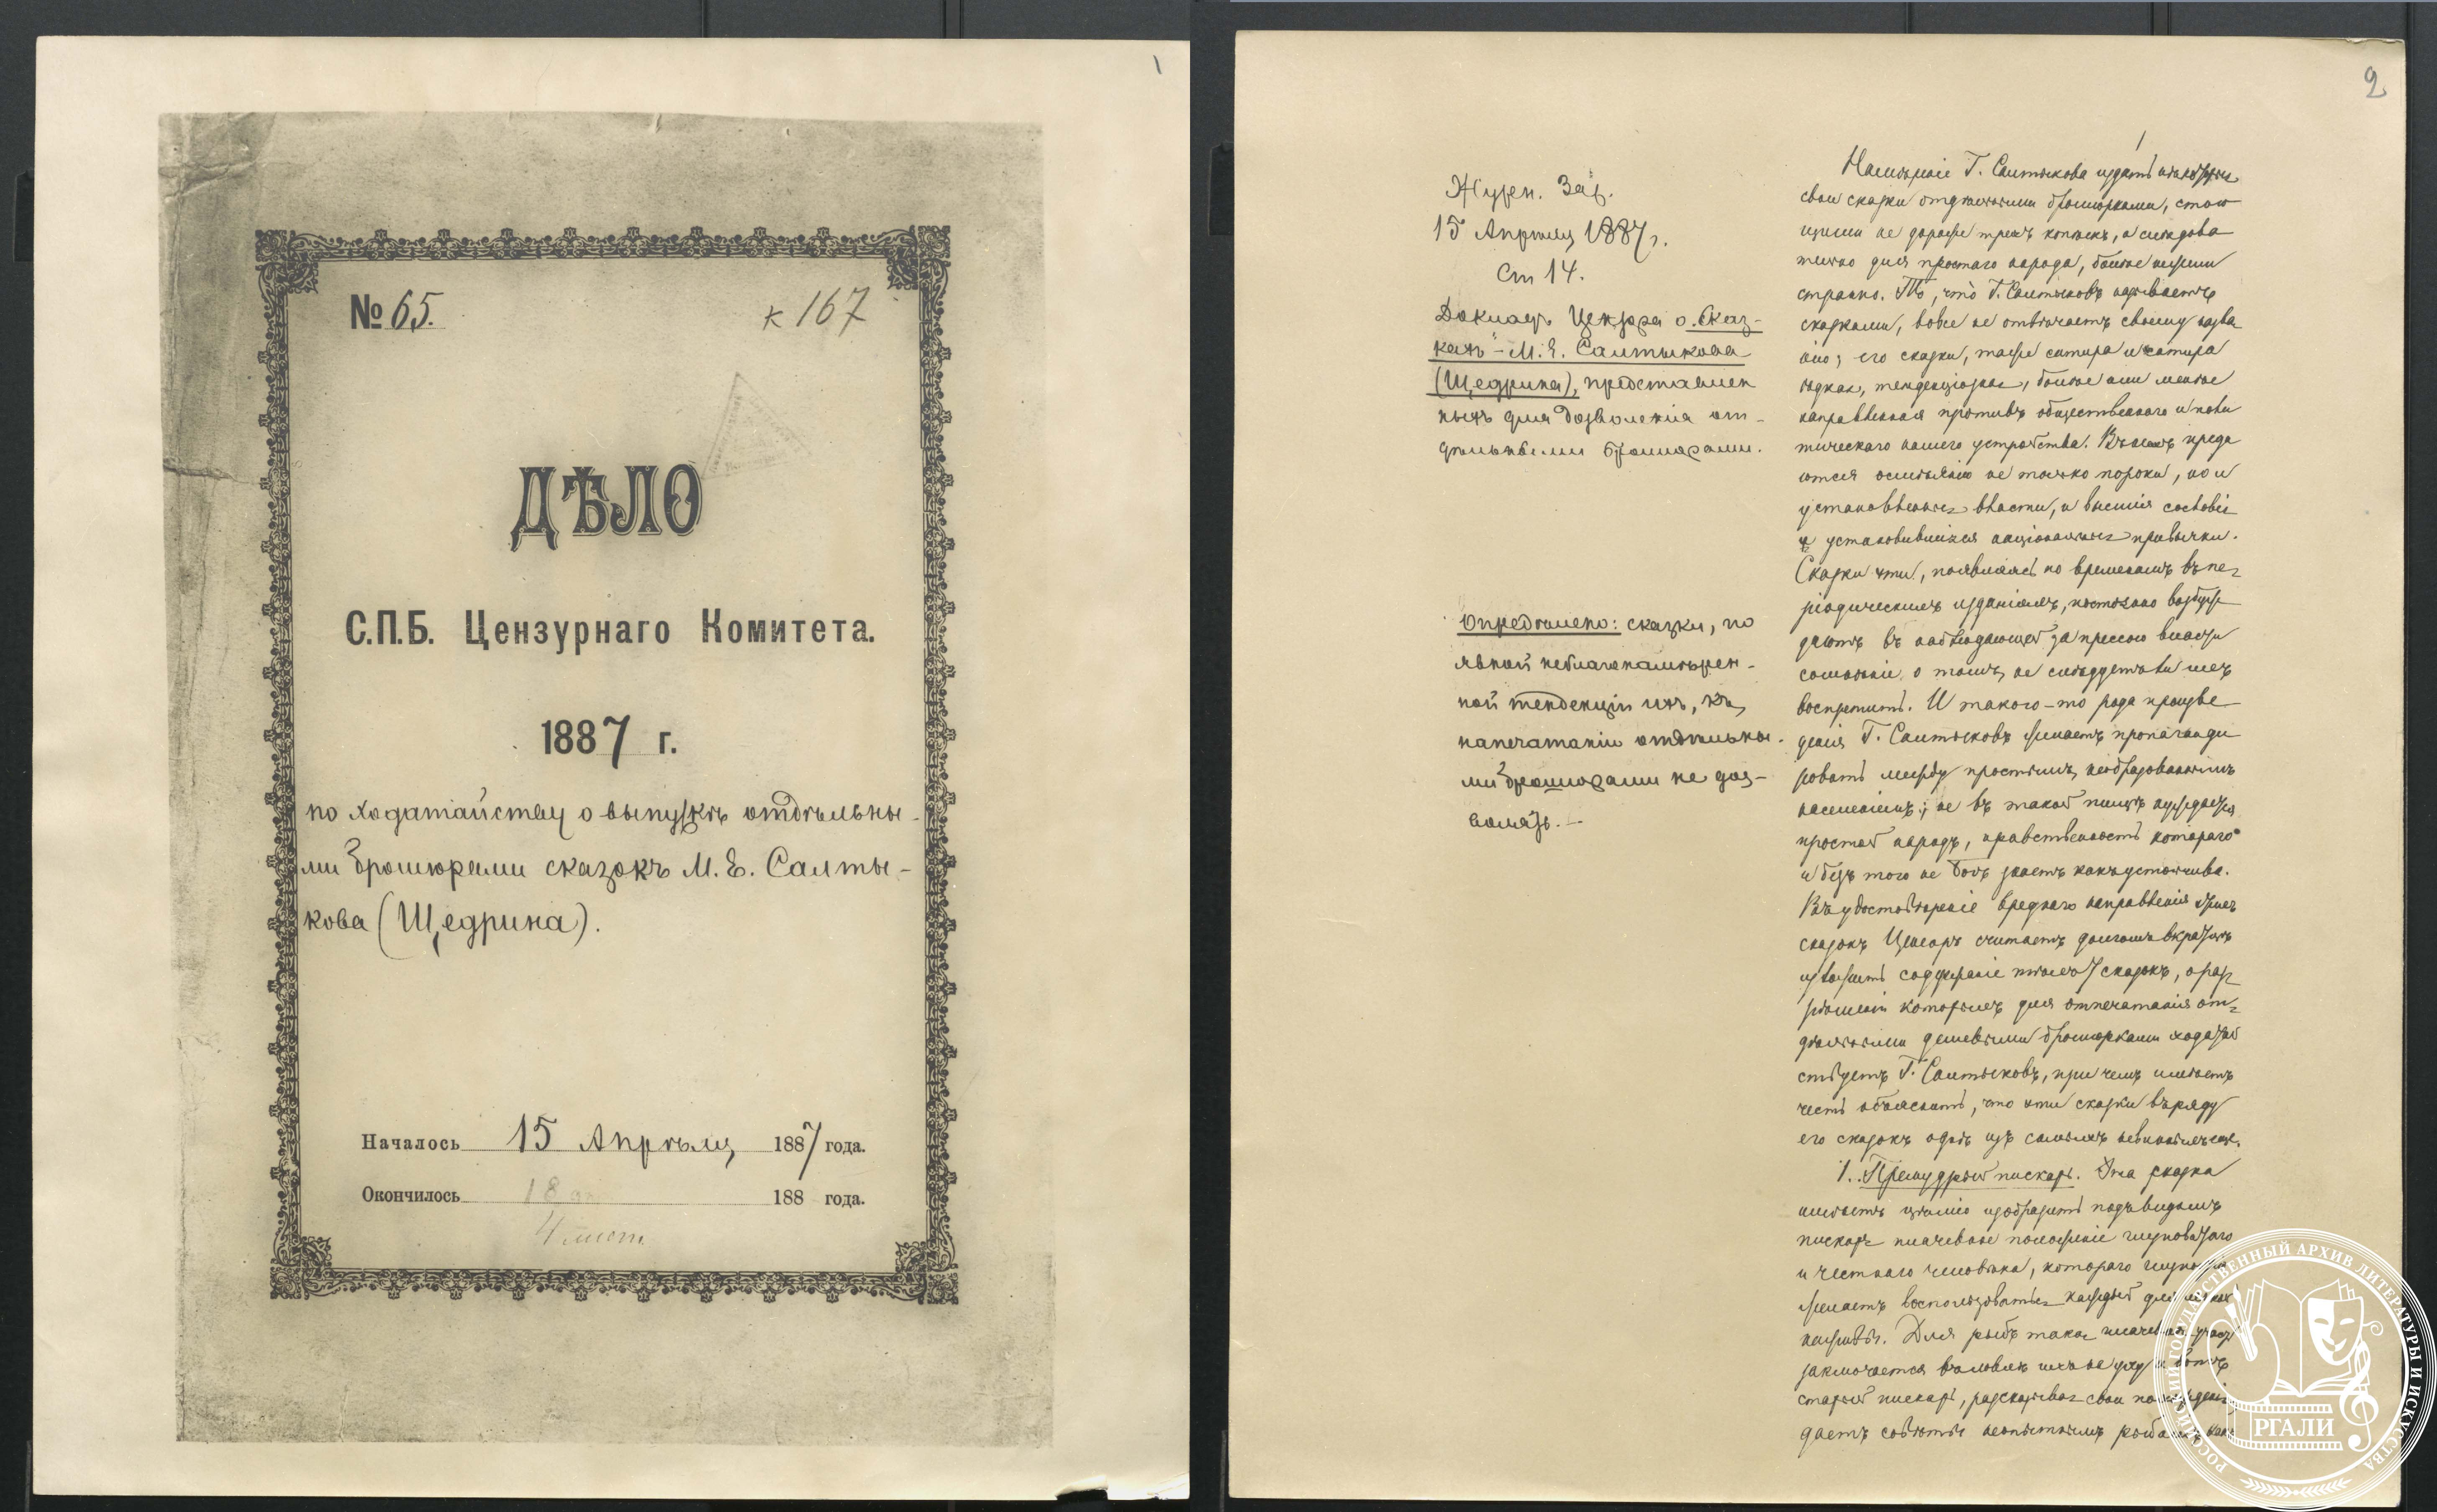 1
№ 65.
к 167
ДѢЛО
С.П.Б. Цензурнаго Комитета.
1887 г.
по ходатайству о выпускѣ отдѣльны-
ми брошюрами сказокъ М. Е. Салты-
кова (Щедрина).
Началось 15 Апрѣля 1887 года.
Окончилось 18 188 года.
4 лист.
2
Журн. Зас.
15 Апрѣля 1887 г.
Ст 14.
Докладъ Цензора о "Сказ-
кахъ" - М. Е. Салтыкова
(Щедрина), представлен
ныхъ для дозволенія от-
дѣльными брошюрами.
Опредѣлено: сказки, по
явной неблагонамѣрен-
ной тенденціи ихъ, къ
напечатанію отдѣльны-
ми брошюрами не доз-
волять. -
1
Намѣреніе Г. Салтыкова издать нѣкоторыя
свои сказки отдѣльными брошюрками, стою
щими не дороже трехъ копѣекъ, а слѣдова
тельно для простаго народа, болѣе нежели
странно. То, что Г. Салтыковъ называетъ
сказками, вовсе не отвѣчаетъ своему назва
нію; его сказки, таже сатира и сатира
ѣдкая, тенденціозная, болѣе или менѣе
направленная противъ общественнаго и поли
тическаго нашего устройства. Въ нихъ преда
ются осмѣянію не только пороки, но и
установленныя власти, и высшія сословія
и установившіяся національныя привычки.
Сказки эти, появляясь по временамъ въ пе-
ріодическихъ изданіяхъ, постоянно возбуж
даютъ въ наблюдающей за прессою власти
сомнѣніе о томъ, не слѣдуетъ ли ихъ
воспретить. И такого-то рода произве
денія Г. Салтыковъ желаетъ пропаганди
ровать между простымъ, необразованнымъ
населеніемъ; не въ такой пищѣ нуждается
простой народъ, нравственность котораго
и безъ того не Богъ знаетъ какъ устойчива.
Въ удостовѣреніе вреднаго направленія этихъ
сказокъ Цензоръ считаетъ долгомъ вкратцѣ
изложить содержаніе тѣхъ сказокъ, о раз
рѣшеніи которыхъ для отпечатанія от-
дѣльными дешевыми брошюрками ходатай
ствуетъ Г. Салтыковъ, при чемъ имѣетъ
честь объяснить, что эти сказки въ ряду
его сказокъ однѣ изъ самыхъ невинныхъ
1. Премудрый пискарь. Эта сказка
имѣетъ цѣлію изобразить подъ видомъ
пискаря плачевное положеніе глуповатаго
и честнаго человѣка, котораго
желаетъ воспользоваться каждый для
наживы. Для рыбъ такая плачевная участь
заключается въ ловлѣ ихъ на уду и вотъ
старый пискарь, разсказывая свои похожденія
даетъ совѣты неопытнымъ рыбамъ
РОССИЙСКИЙ ГОСУДАРСТВЕННЫЙ АРХИВ ЛИТЕРАТУРЫ И ИСКУССТВА
РГАЛИ